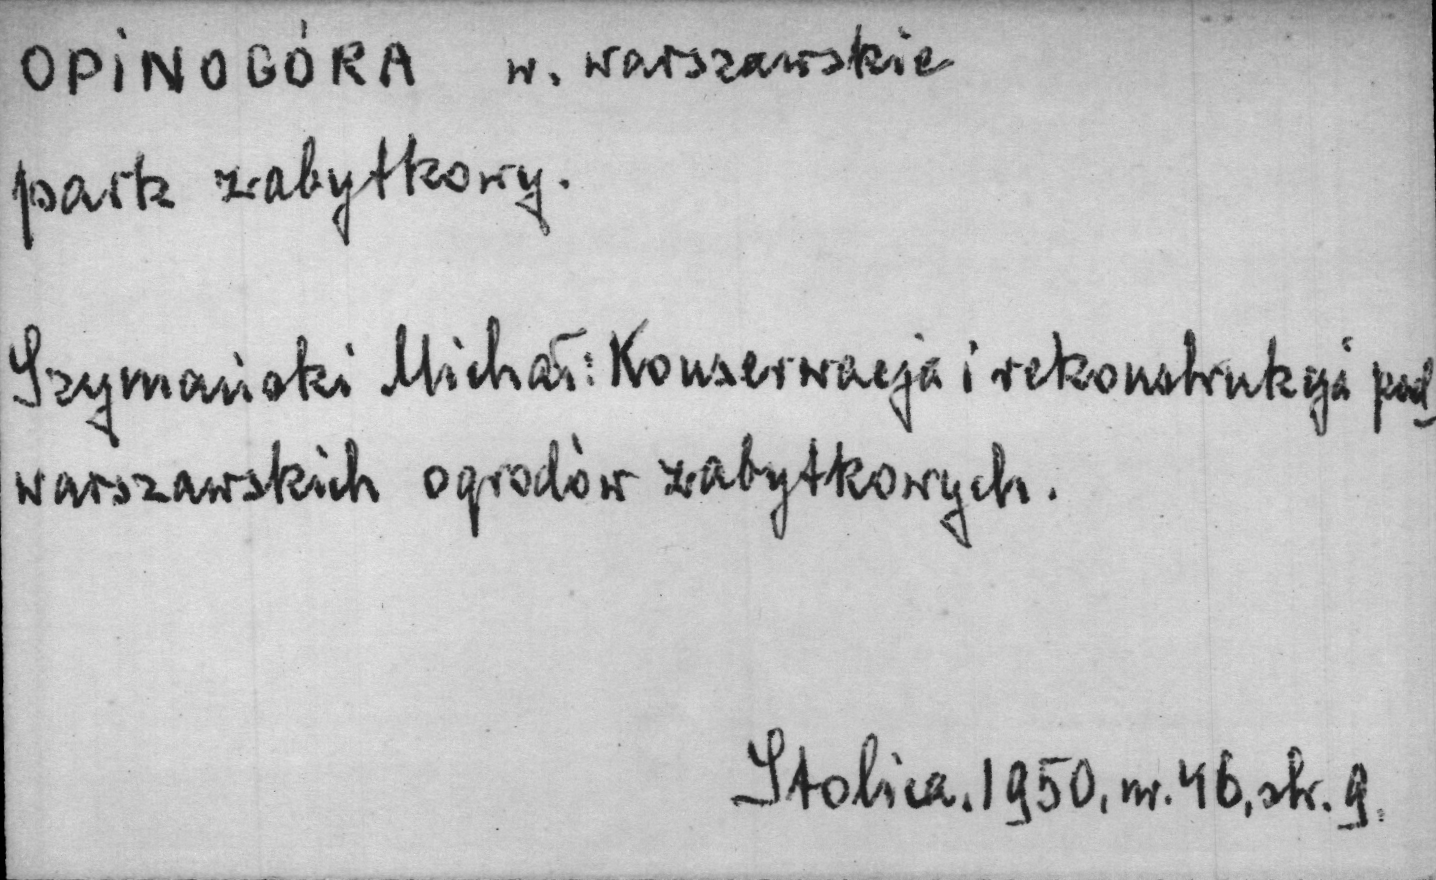 OPINOGÓRA w. warszawskie
park zabytkowy.
Szymański Michał: Konserwacja i rekonstrukcja pod
warszawskich ogrodów zabytkowych.
Stolica. 1950, nr. 46, str. 9.